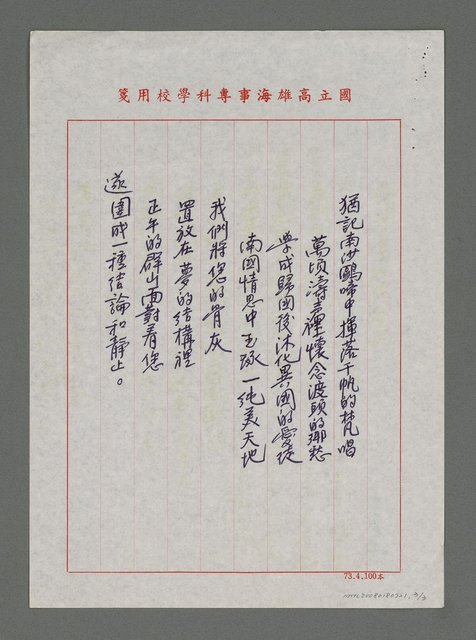 國立高雄海事專科學校用箋
猶記南沙鷗啼中揮落千帆的梵唱
萬頃濤聲裡懷念渡頭的鄉愁
學成歸國後沐化異國的愛徒
南國情思中玉琢一純美天地
我們將您的骨灰
置放在夢的結構裡
正午的群山面對着您
遂圍成一種結論和靜止。
73.4.100本
NMTL20080180721, 3/3